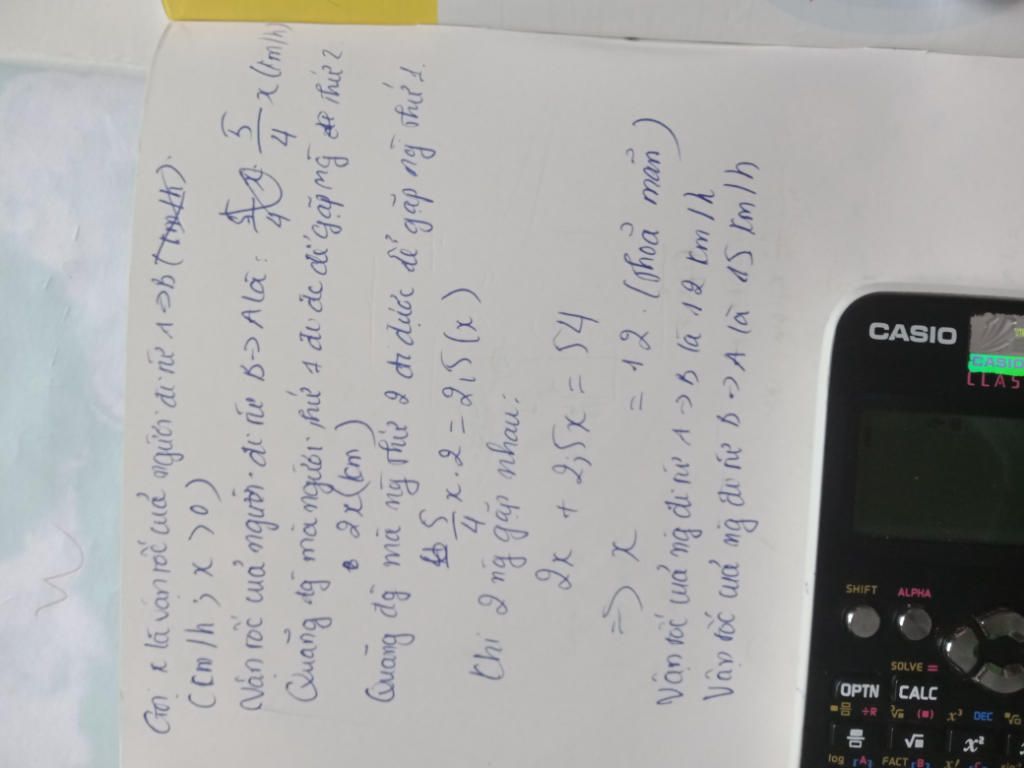 Gọi x là vận tốc của người đi từ A->B (km/h).
(km/h ; x > 0)
Vận tốc của người đi từ B-> A là: 5/4 x (km/h)
Quãng đg mà người thứ 1 đi đc để gặp ng thứ 2
2x (km)
Quãng đg mà ng thứ 2 đi được để gặp ng thứ 1.
5/4 x . 2 = 2,5 (x)
Khi 2 ng gặp nhau:
2x + 2,5x = 54
=> x = 12 . (thoả mãn)
Vận tốc của ng đi từ A -> B là 12 km/h
Vận tốc của ng đi từ B -> A là 15 km/h
CASIO
CASIO
CLAS
SHIFT ALPHA
SOLVE =
OPTN CALC
÷R x³ DEC
√ x²
log [A] FACT [B] x! [C]